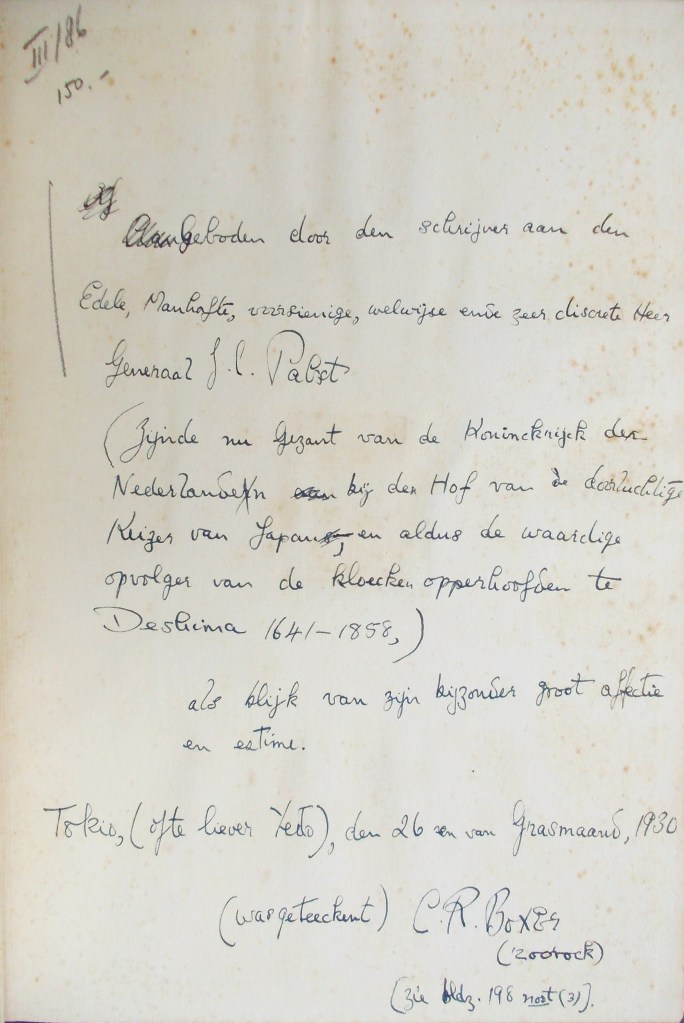 III/86
150.-
Aangeboden door den schrijver aan den
Edele, Manhafte, voorsienige, welwijse ende zeer discrete Heer
Generaal J. C. Pabst
(Zijnde nu Gezant van de Koninckrijck der
Nederlanden bij den Hof van de doorluchtige
Keizer van Japan, en aldus de waardige
opvolger van de kloecken opperhoofden te
Deshima 1641-1858,)
als blijk van zijn bijzonder groot affectie
en estime.
Tokio, (ofte liever Yedo), den 26 en van Grasmaand, 1930
(wasgeteeckent) C. R. Boxer
(zoorock)
(zie bldz. 198 noot (3)].